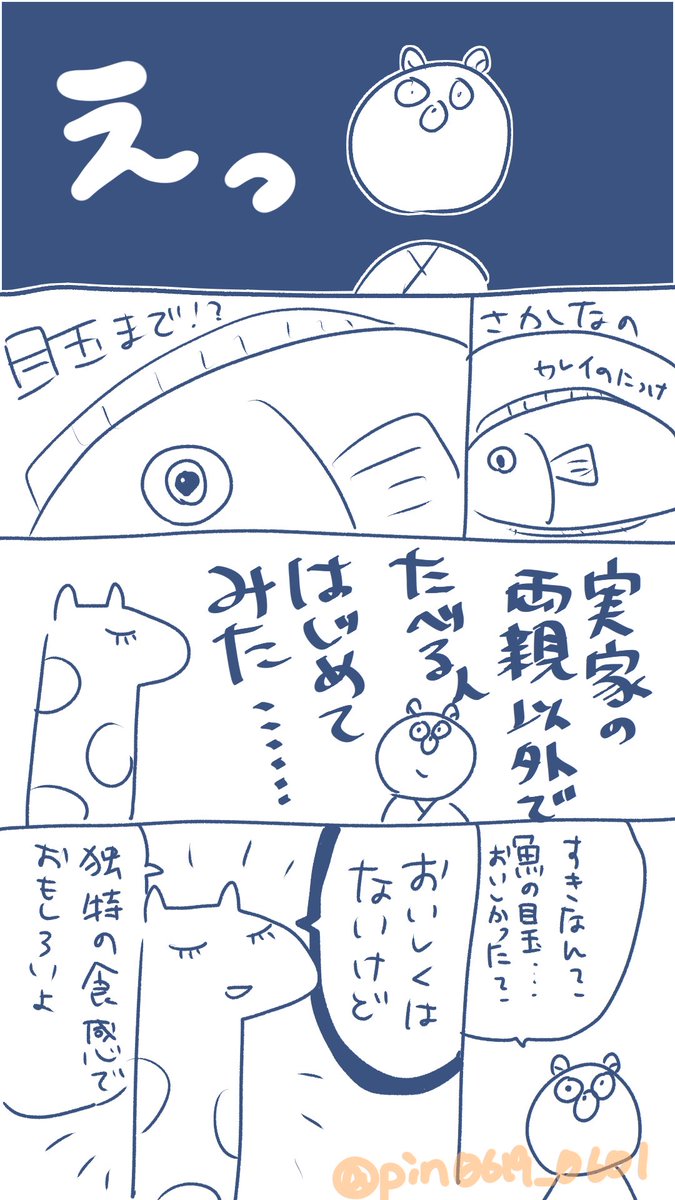 えっ
さかしなの
カレイのにつけ
目玉まで!?
実家の
両親以外で
たべる人
はじめて
みた……
すきなんてこ
魚の目玉…
おいしかったてこ
おいしくは
ないけど
独特の食感で
おもしろいよ
@pin0619_0601